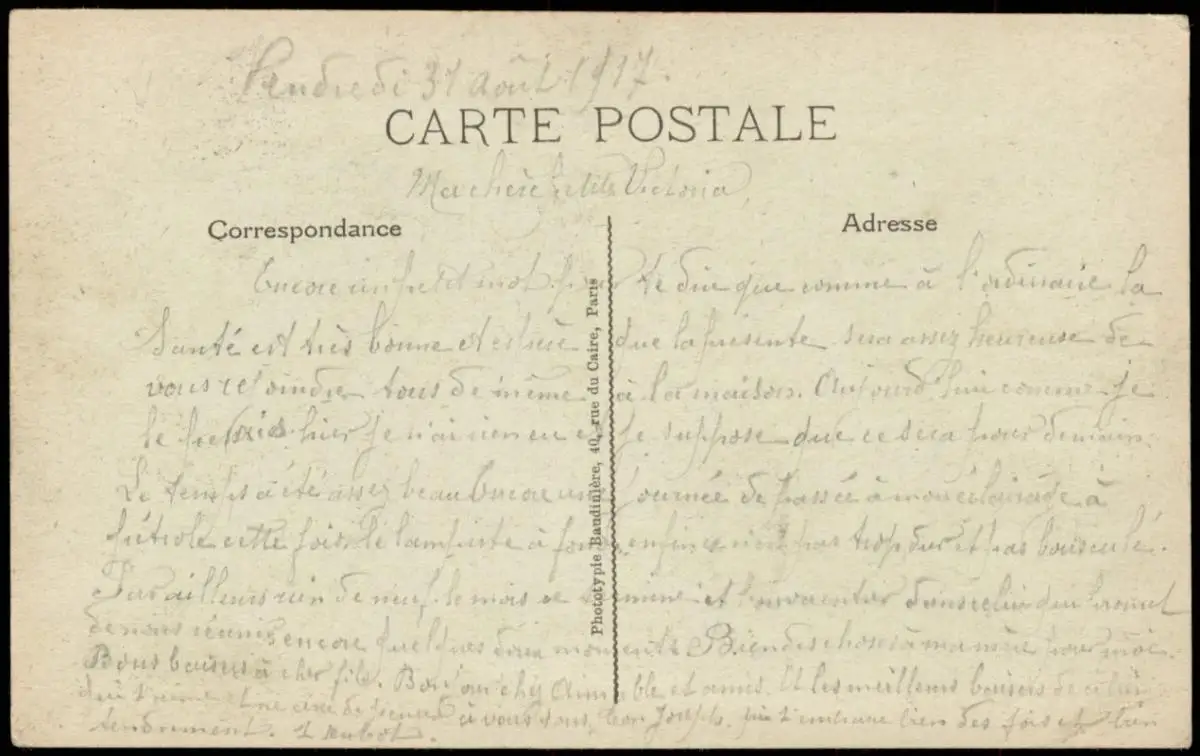 Vendredi 31 août 1917.
CARTE POSTALE
Ma chère petite Victoria,
Correspondance
Adresse
Encore un petit mot pour te dire que comme à l'ordinaire la
Santé est très bonne et espère que la présente sera assez heureuse de
vous rejoindre tous de même à la maison. Aujourd'hui comme je
le hier je n'ai rien eu et je suppose que ce sera pour demain.
Le temps a été assez beau Encore une journée de passée à mon éclairage à
pétrole cette fois le lampiste à enfin ce n'est pas trop dur et pas bousculé.
Par ailleurs rien de neuf, le mois se termine et l'on va entrer dans celui qui
de nous réunir encore quelques doux moments Bien des choses à ma mère pour moi.
Bons baisers à cher fils. Bonjour chez Aimable et amis. Et les meilleurs baisers de celui
qui t'aime et ne cesse de à vous tous, ton Joseph. qui t'embrasse bien des fois et bien
tendrement.
Phototypie Baudinière, 40, rue du Caire, Paris